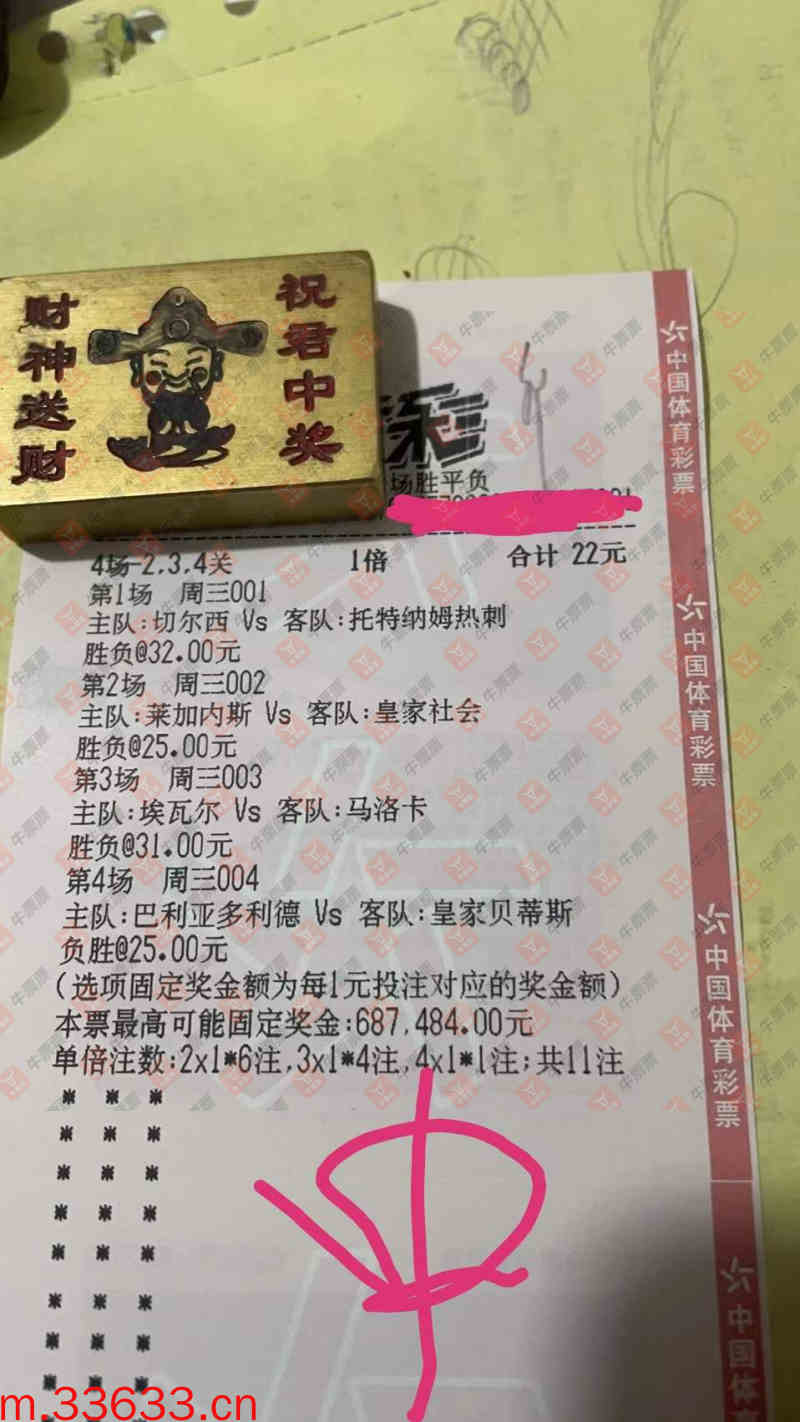 财神送财
祝君中奖
场胜平负
4场-2,3,4关 1倍 合计 22元
第1场 周三001
主队:切尔西 Vs 客队:托特纳姆热刺
胜负@32.00元
第2场 周三002
主队:莱加内斯 Vs 客队:皇家社会
胜负@25.00元
第3场 周三003
主队:埃瓦尔 Vs 客队:马洛卡
胜负@31.00元
第4场 周三004
主队:巴利亚多利德 Vs 客队:皇家贝蒂斯
负胜@25.00元
(选项固定奖金额为每1元投注对应的奖金额)
本票最高可能固定奖金:687,484.00元
单倍注数:2x1*6注,3x1*4注,4x1*1注;共11注
* * *
* * *
* * *
* * *
* * *
* * *
* * *
* * *
中国体育彩票
中国体育彩票
中国体育彩票
中国体
牛票票
m.33633.cn